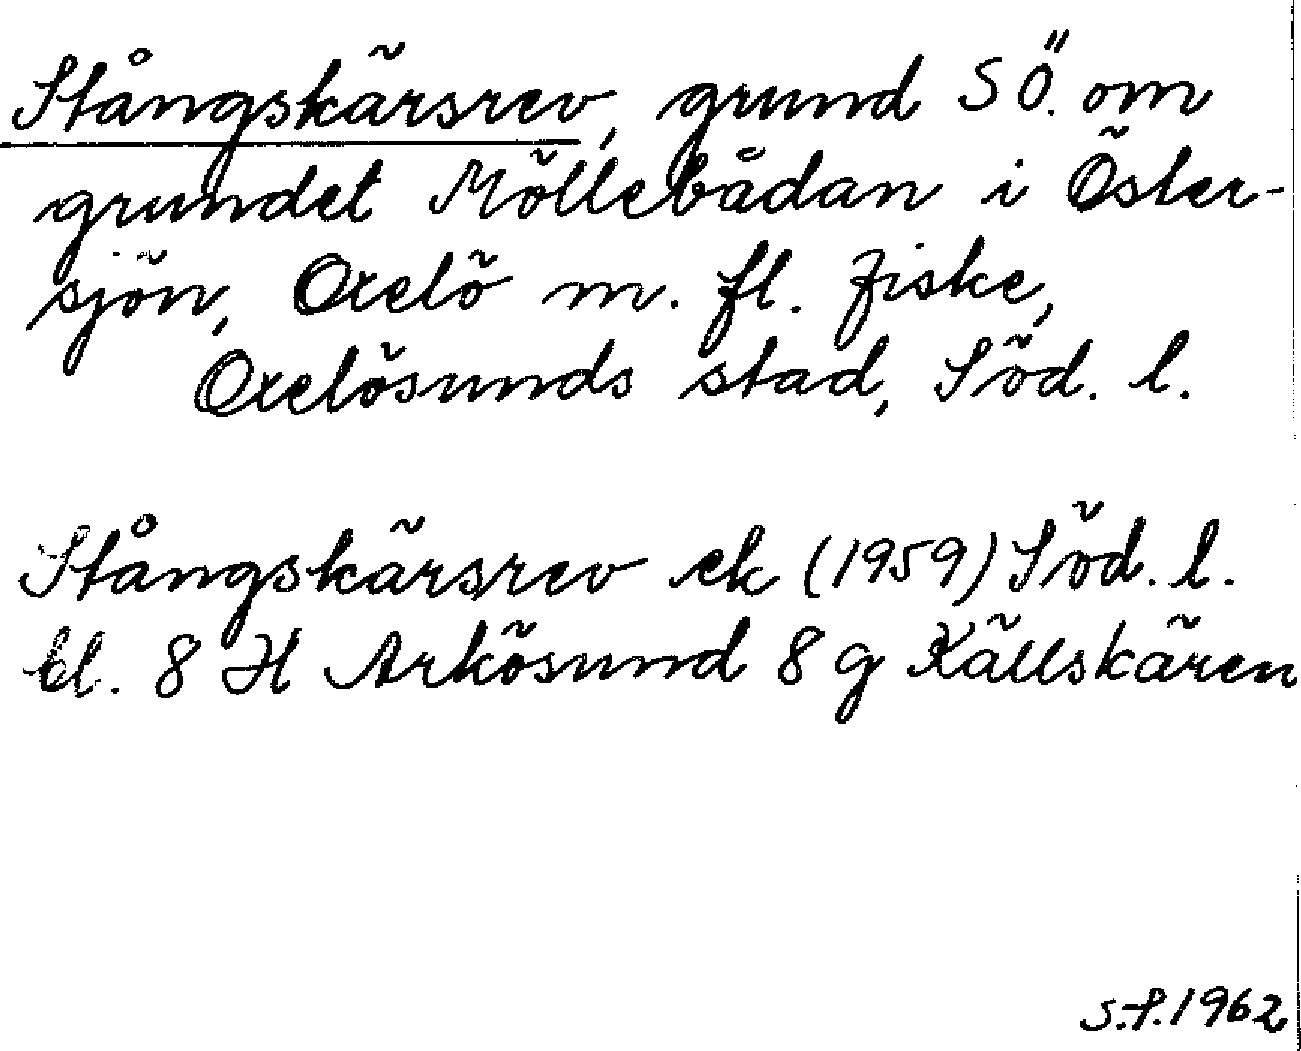 Stångskärsrev, grund SÖ. om
grundet Möllebådan i Öster-
sjön, Oxelö m. fl. fiske,
Oxelösunds stad, Söd. l.
Stångskärsrev ek (1959) Söd. l.
bl. 8 H Arkösund 8 g Källskären
S.-f. 1962